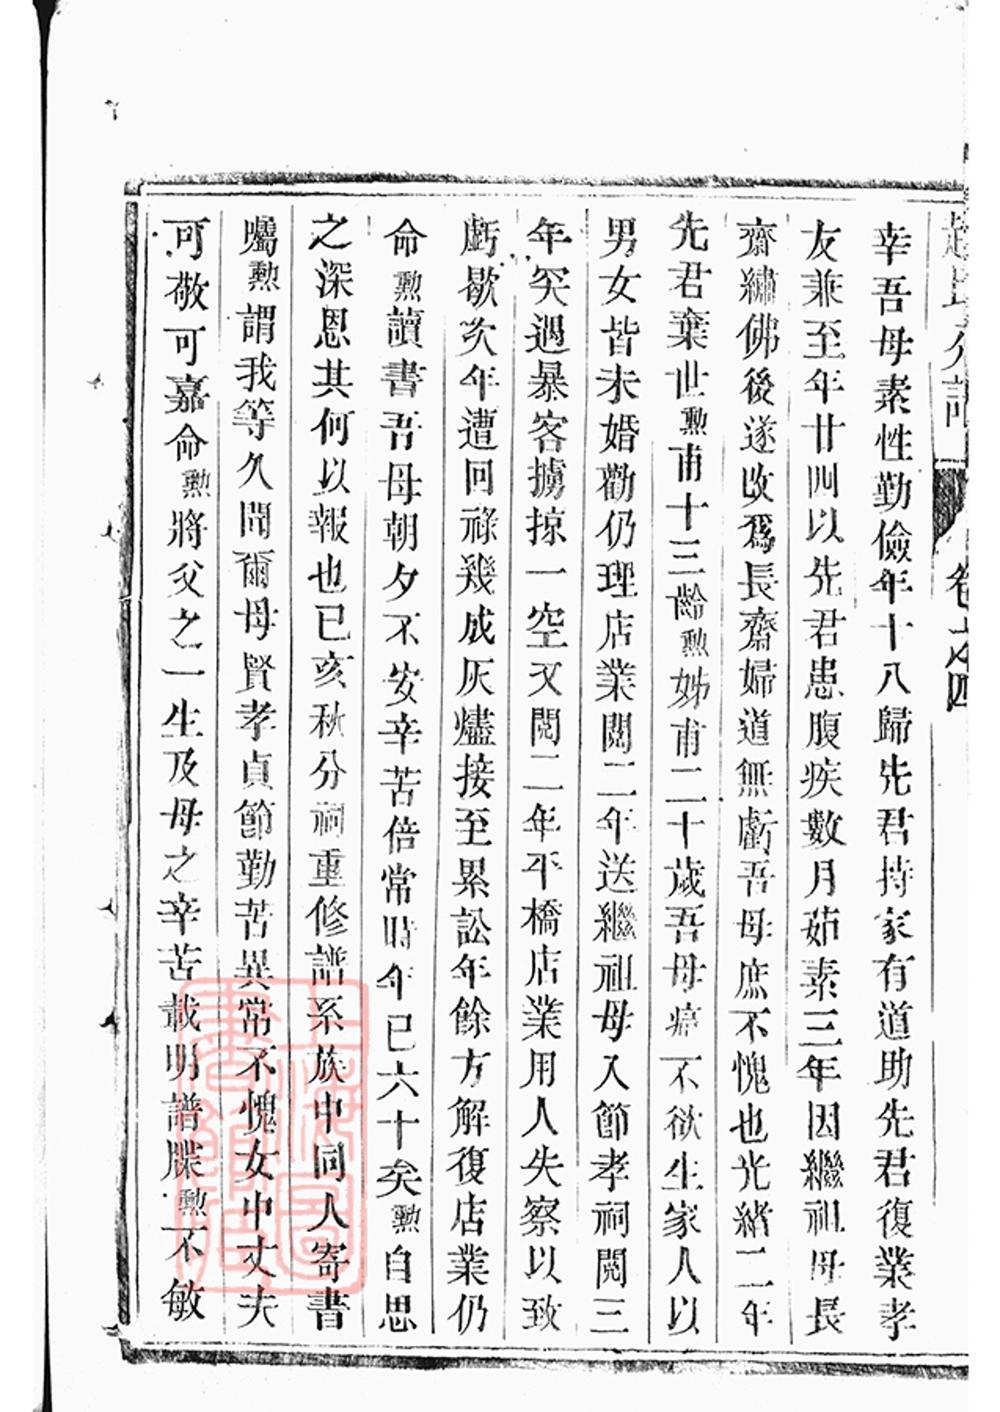 趙氏分譜 卷之四
幸吾母素性勤儉年十八歸先君持家有道助先君復業孝
友兼至年廿四以先君患腹疾數月茹素三年因繼祖母長
齋繡佛後遂改爲長齋婦道無虧吾母庶不愧也光緒二年
先君棄世勲甫十三齡勲姊甫二十歲吾母痛不欲生家人以
男女皆未婚勸仍理店業閱二年送繼祖母入節孝祠閱三
年突遇暴客擄掠一空又閱二年平橋店業用人失察以致
虧歇次年遭回祿幾成灰燼接至累訟年餘方解復店業仍
命勲讀書吾母朝夕不安辛苦倍常時年已六十矣勲自思
之深恩其何以報也已亥秋分祠重修譜系族中同人寄書
囑勲謂我等久聞爾母賢孝貞節勤苦異常不愧女中丈夫
可敬可嘉命勲將父之一生及母之辛苦載明譜牒勲不敏
上海圖書館藏